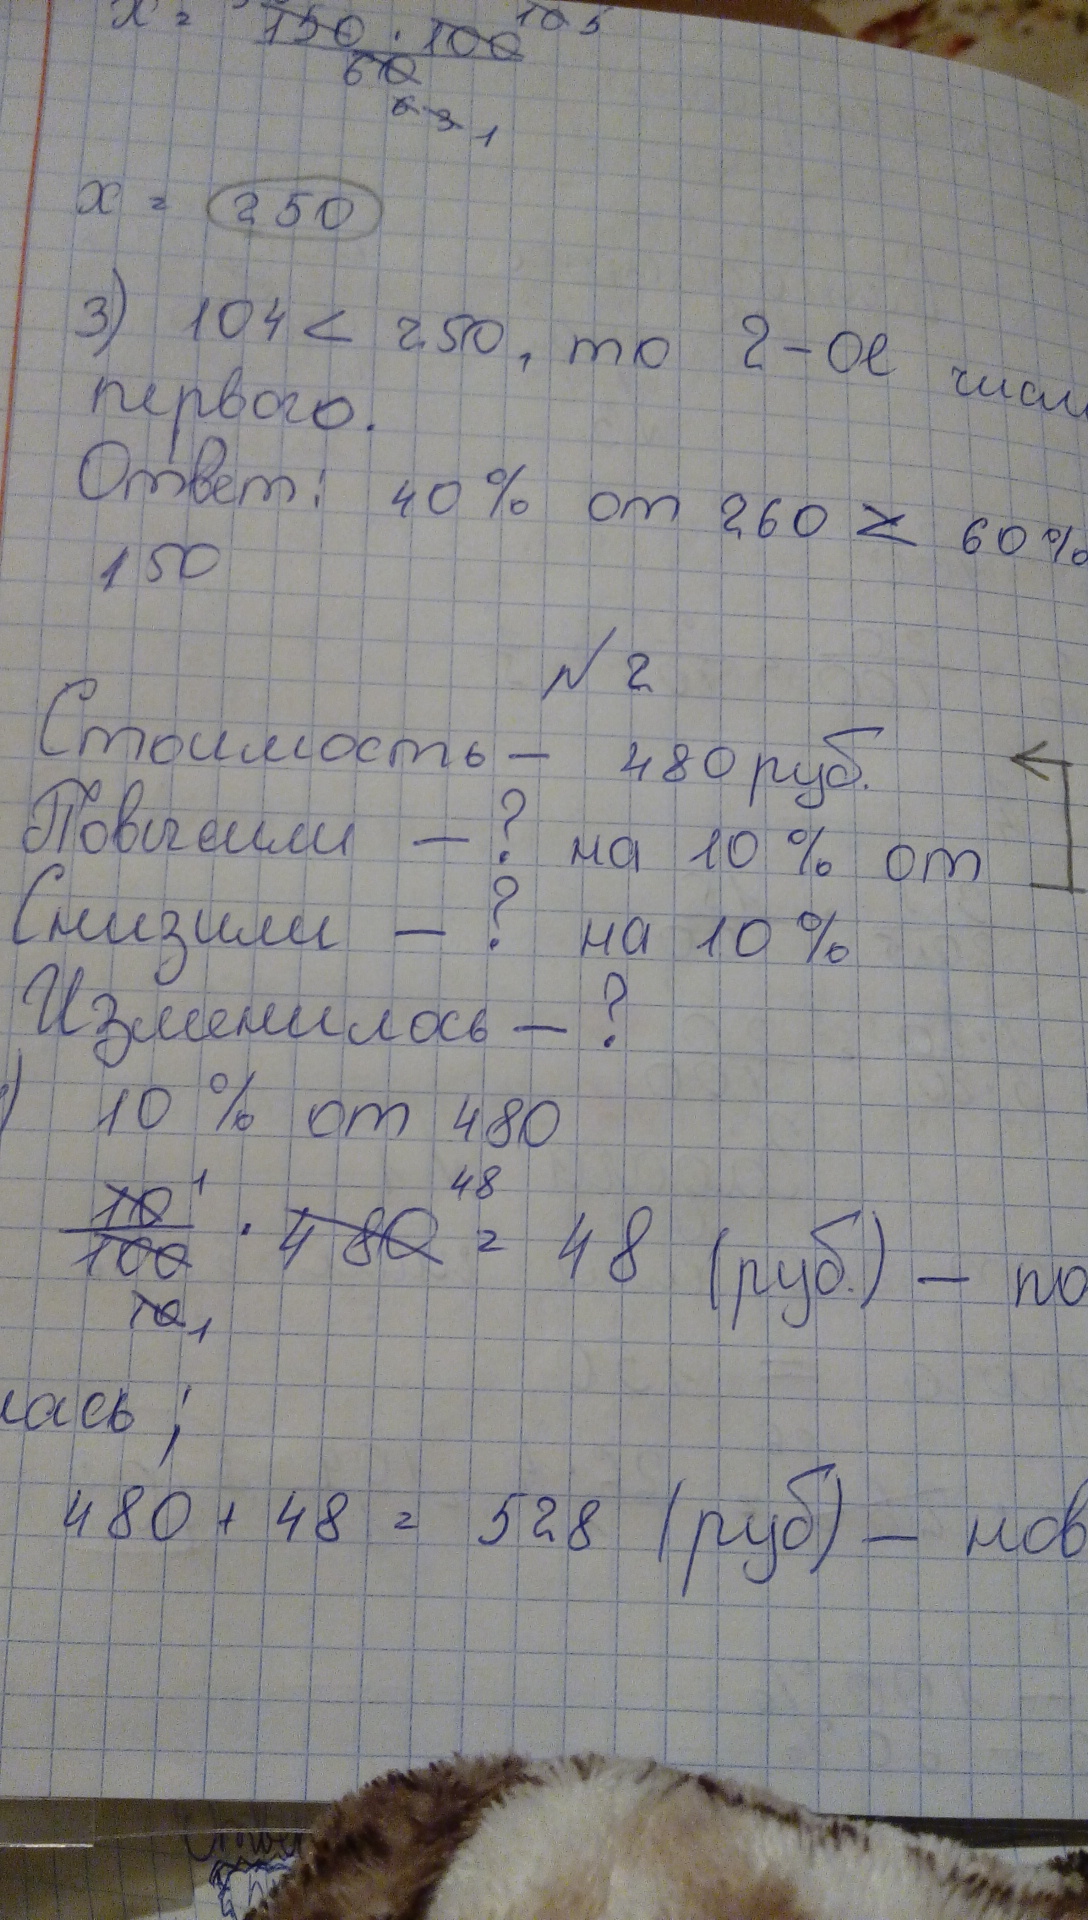 x = 150 · 100 10 5
60
6 3 1
x = 250
3) 104 < 250, то 2-ое числ
первого.
Ответ: 40% от 260 < 60%
150
№2
Стоимость - 480 руб.
Повысили - ? на 10% от
Снизили - ? на 10%
Изменилось - ?
) 10% от 480
10 1 / 100 10 1 · 480 48 = 48 (руб.) - по
лась;
480 + 48 = 528 (руб) - нов